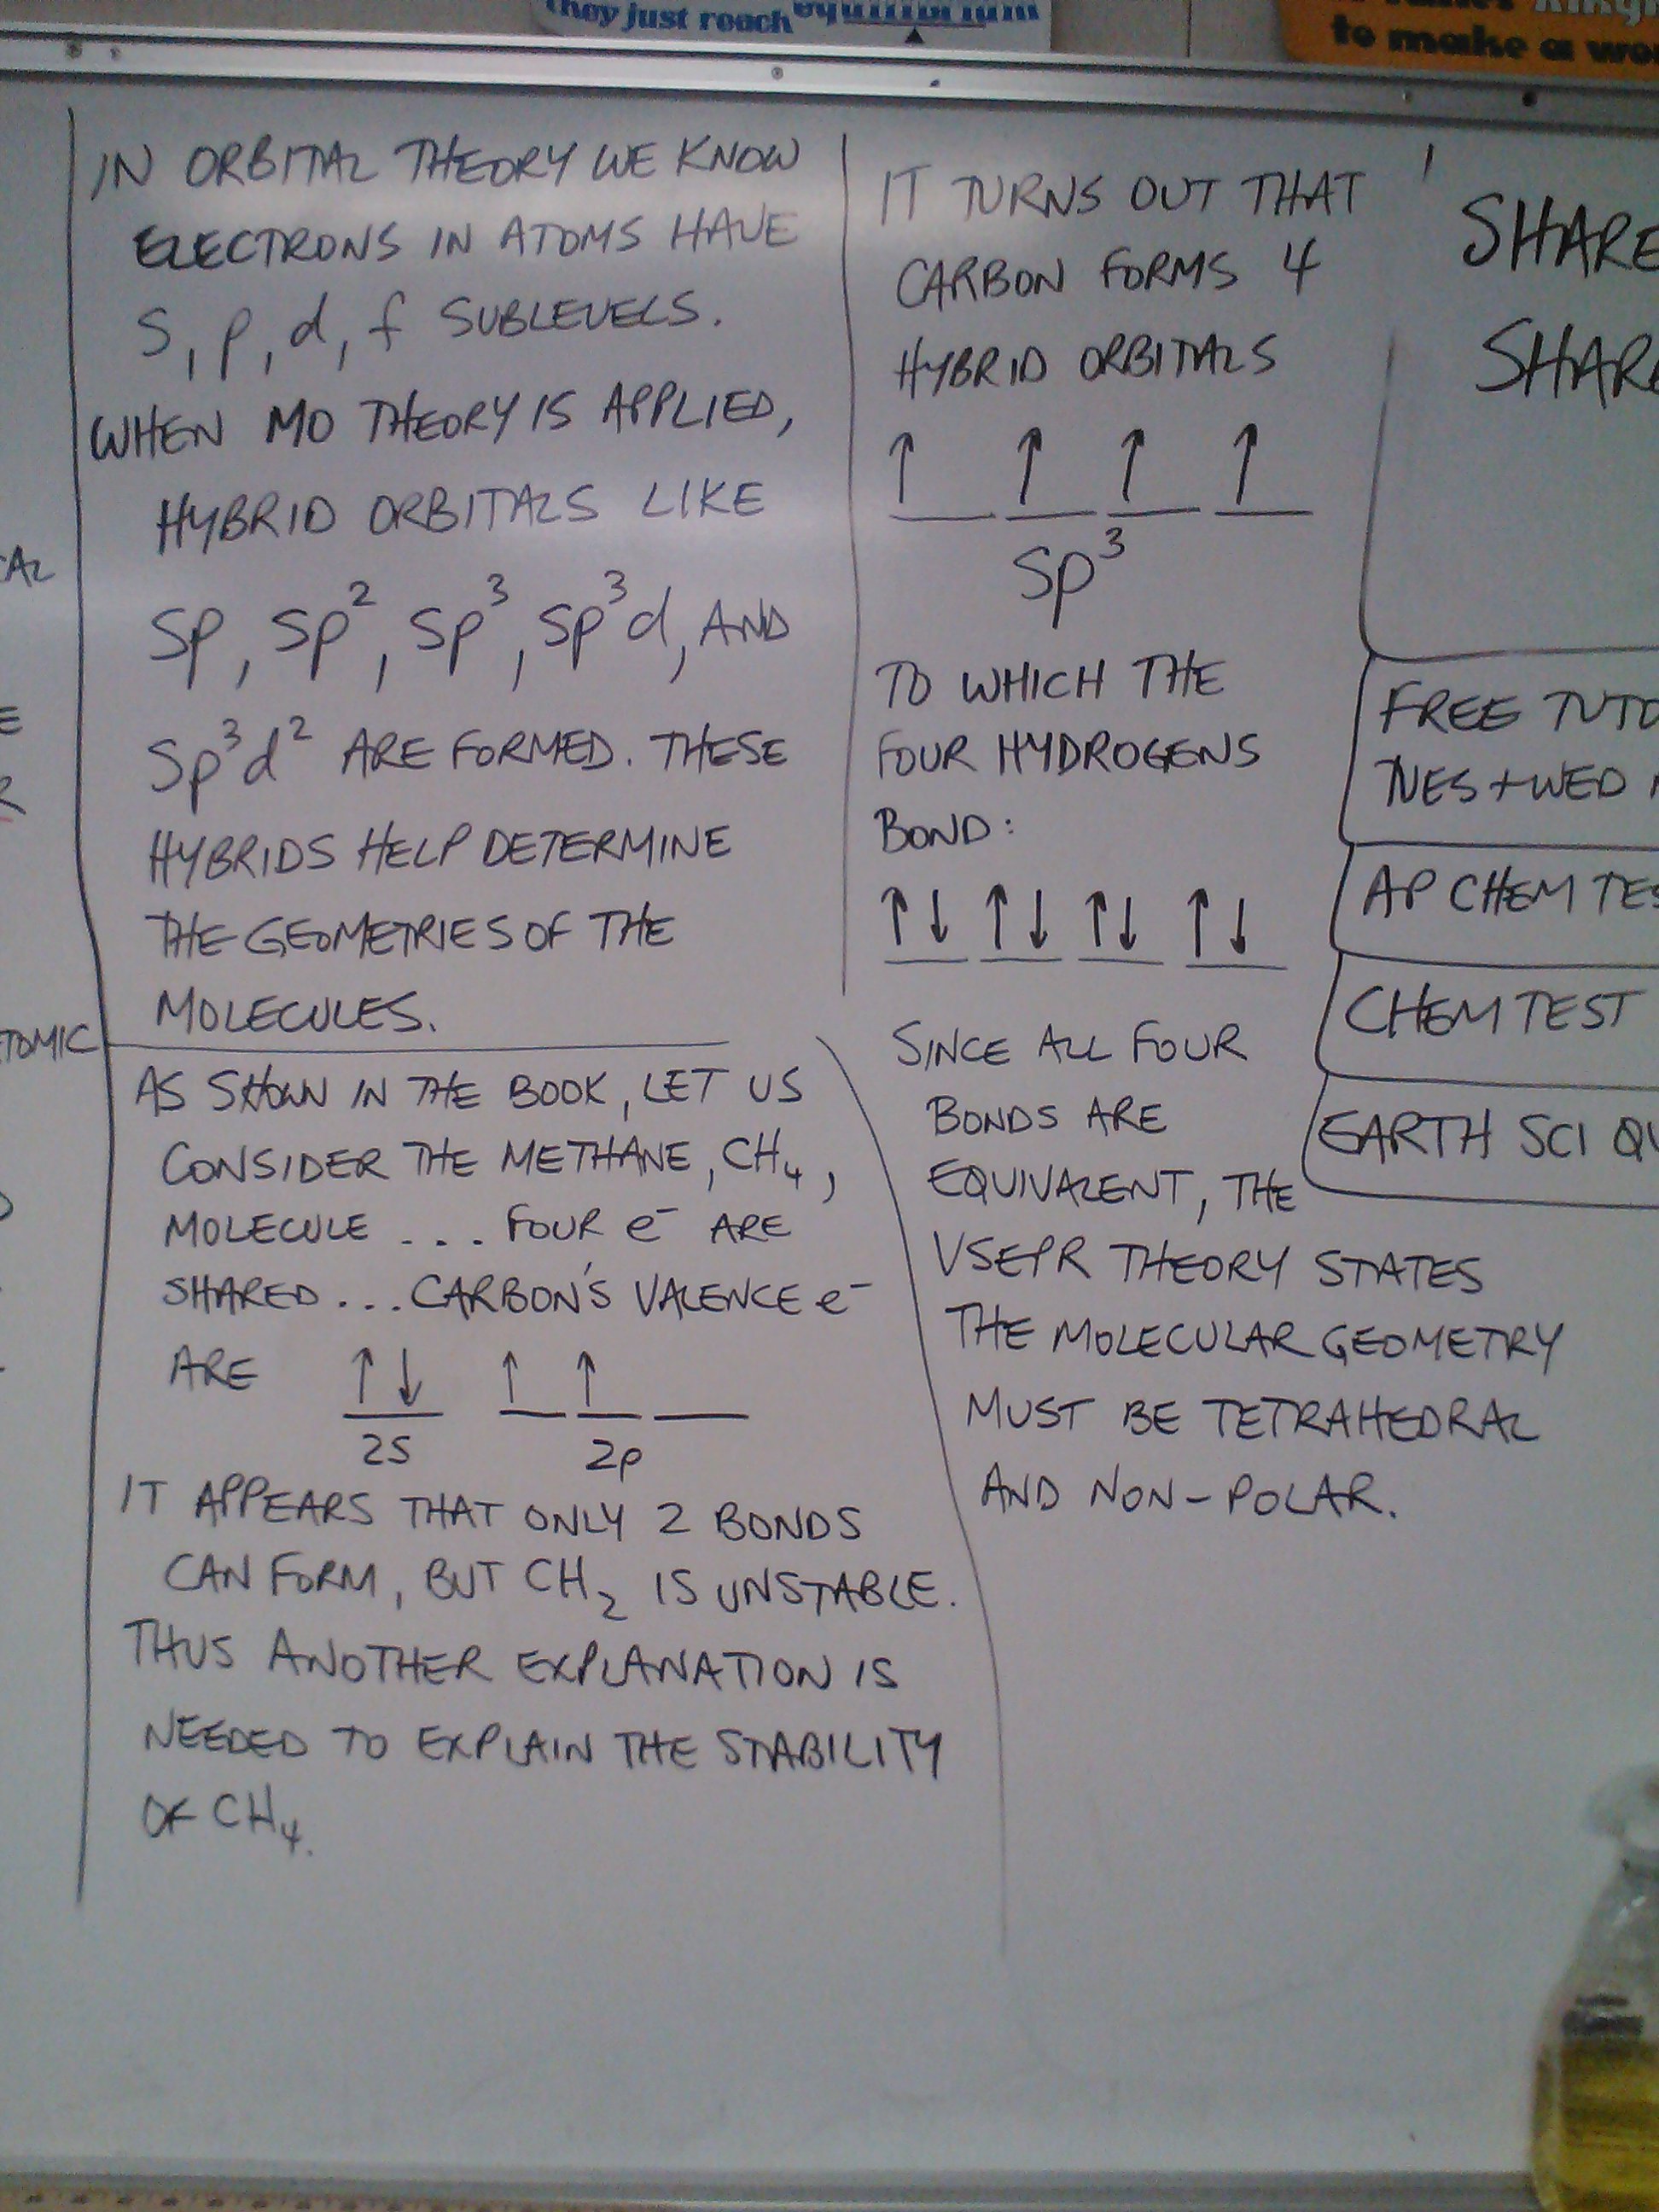 they just reach equilibrium
to make a
IN ORBITAL THEORY WE KNOW
ELECTRONS IN ATOMS HAVE
s, p, d, f SUBLEVELS.
WHEN MO THEORY IS APPLIED,
HYBRID ORBITALS LIKE
sp, sp², sp³, sp³d, AND
sp³d² ARE FORMED. THESE
HYBRIDS HELP DETERMINE
THE GEOMETRIES OF THE
MOLECULES.
AS SHOWN IN THE BOOK, LET US
CONSIDER THE METHANE, CH₄,
MOLECULE ... FOUR e⁻ ARE
SHARED ... CARBON'S VALENCE e⁻
ARE ↑↓ ↑ ↑
2s 2p
IT APPEARS THAT ONLY 2 BONDS
CAN FORM, BUT CH₂ IS UNSTABLE.
THUS ANOTHER EXPLANATION IS
NEEDED TO EXPLAIN THE STABILITY
OF CH₄.
IT TURNS OUT THAT
CARBON FORMS 4
HYBRID ORBITALS
↑ ↑ ↑ ↑
sp³
TO WHICH THE
FOUR HYDROGENS
BOND:
↑↓ ↑↓ ↑↓ ↑↓
SINCE ALL FOUR
BONDS ARE
EQUIVALENT, THE
VSEPR THEORY STATES
THE MOLECULAR GEOMETRY
MUST BE TETRAHEDRAL
AND NON-POLAR.
SHARE
SHARE
FREE TUTO
TUES + WED
AP CHEM TES
CHEM TEST
EARTH SCI QU
TOMIC